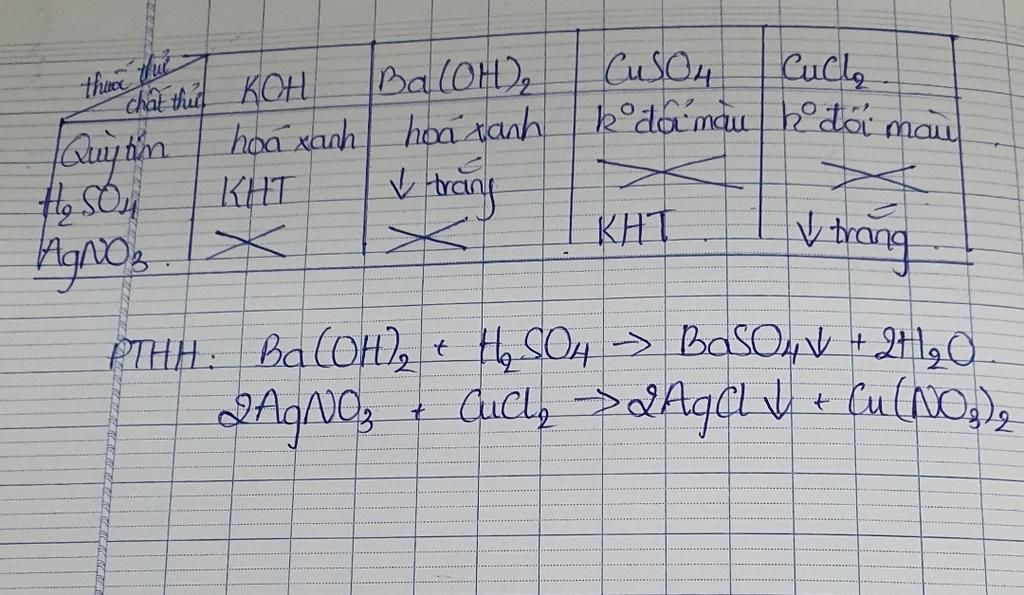 thuốc thử
chất thử KOH Ba(OH)2 CuSO4 CuCl2
Quỳ tím hoá xanh hoá xanh k° đổi màu k° đổi màu
H2SO4 KHT ↓ trắng
AgNO3. KHT ↓ trắng
PTHH: Ba(OH)2 + H2SO4 → BaSO4↓ + 2H2O.
2AgNO3 + CuCl2 → 2AgCl↓ + Cu(NO3)2